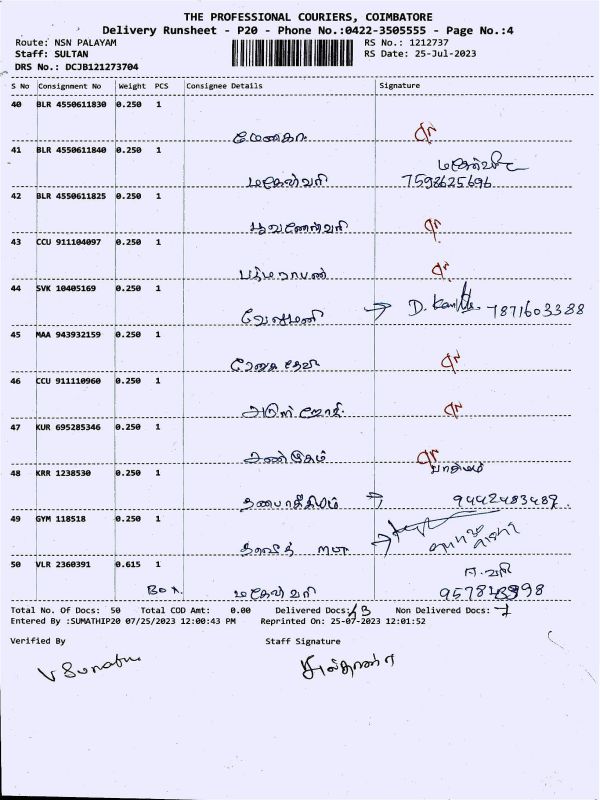 THE PROFESSIONAL COURIERS, COIMBATORE
Delivery Runsheet - P20 - Phone No.:0422-3505555 - Page No.:4
Route: NSN PALAYAM RS No.: 1212737
Staff: SULTAN RS Date: 25-Jul-2023
DRS No.: DCJB121273704
S No Consignment No Weight PCS Consignee Details Signature
40 BLR 4550611830 0.250 1
மேனகா
41 BLR 4550611840 0.250 1
மகேஸ்வரி 7598625696
42 BLR 4550611825 0.250 1
புவனேஸ்வரி
43 CCU 911104097 0.250 1
பத்மநாபன்
44 SVK 10405169 0.250 1
வேலுமணி → D. 7871603388
45 MAA 943932159 0.250 1
ரேணுகாதேவி
46 CCU 911110960 0.250 1
அருள் ஜோதி
47 KUR 695285346 0.250 1
சண்முகம்
48 KRR 1238530 0.250 1
→ 9442483487.
49 GYM 118518 0.250 1
→
50 VLR 2360391 0.615 1
BOX மகேஸ்வரி
Total No. Of Docs: 50 Total COD Amt: 0.00 Delivered Docs: 43 Non Delivered Docs: 7
Entered By :SUMATHIP20 07/25/2023 12:00:43 PM Reprinted On: 25-07-2023 12:01:52
Verified By Staff Signature
சுல்தான்